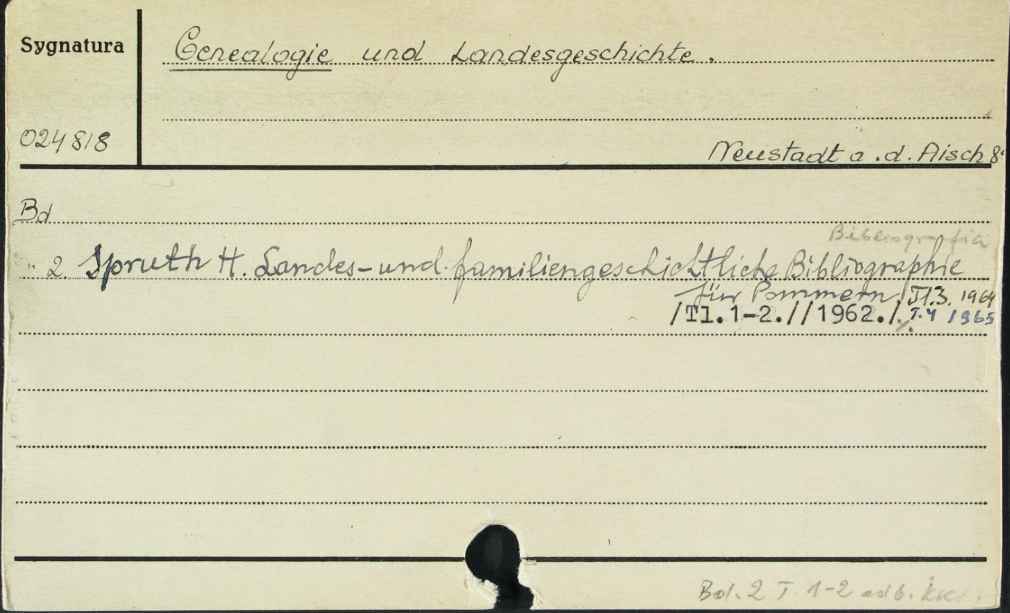 Sygnatura
Genealogie und Landesgeschichte.
024818
Neustadt a.d. Aisch 8°
Bd
" 2 Spruth H. Landes- und familiengeschichtliche Bibliographie
für Pommern /Tl.3. 1964
/Tl.1-2.//1962./ T.4 1965
Bd. 2 T. 1-2